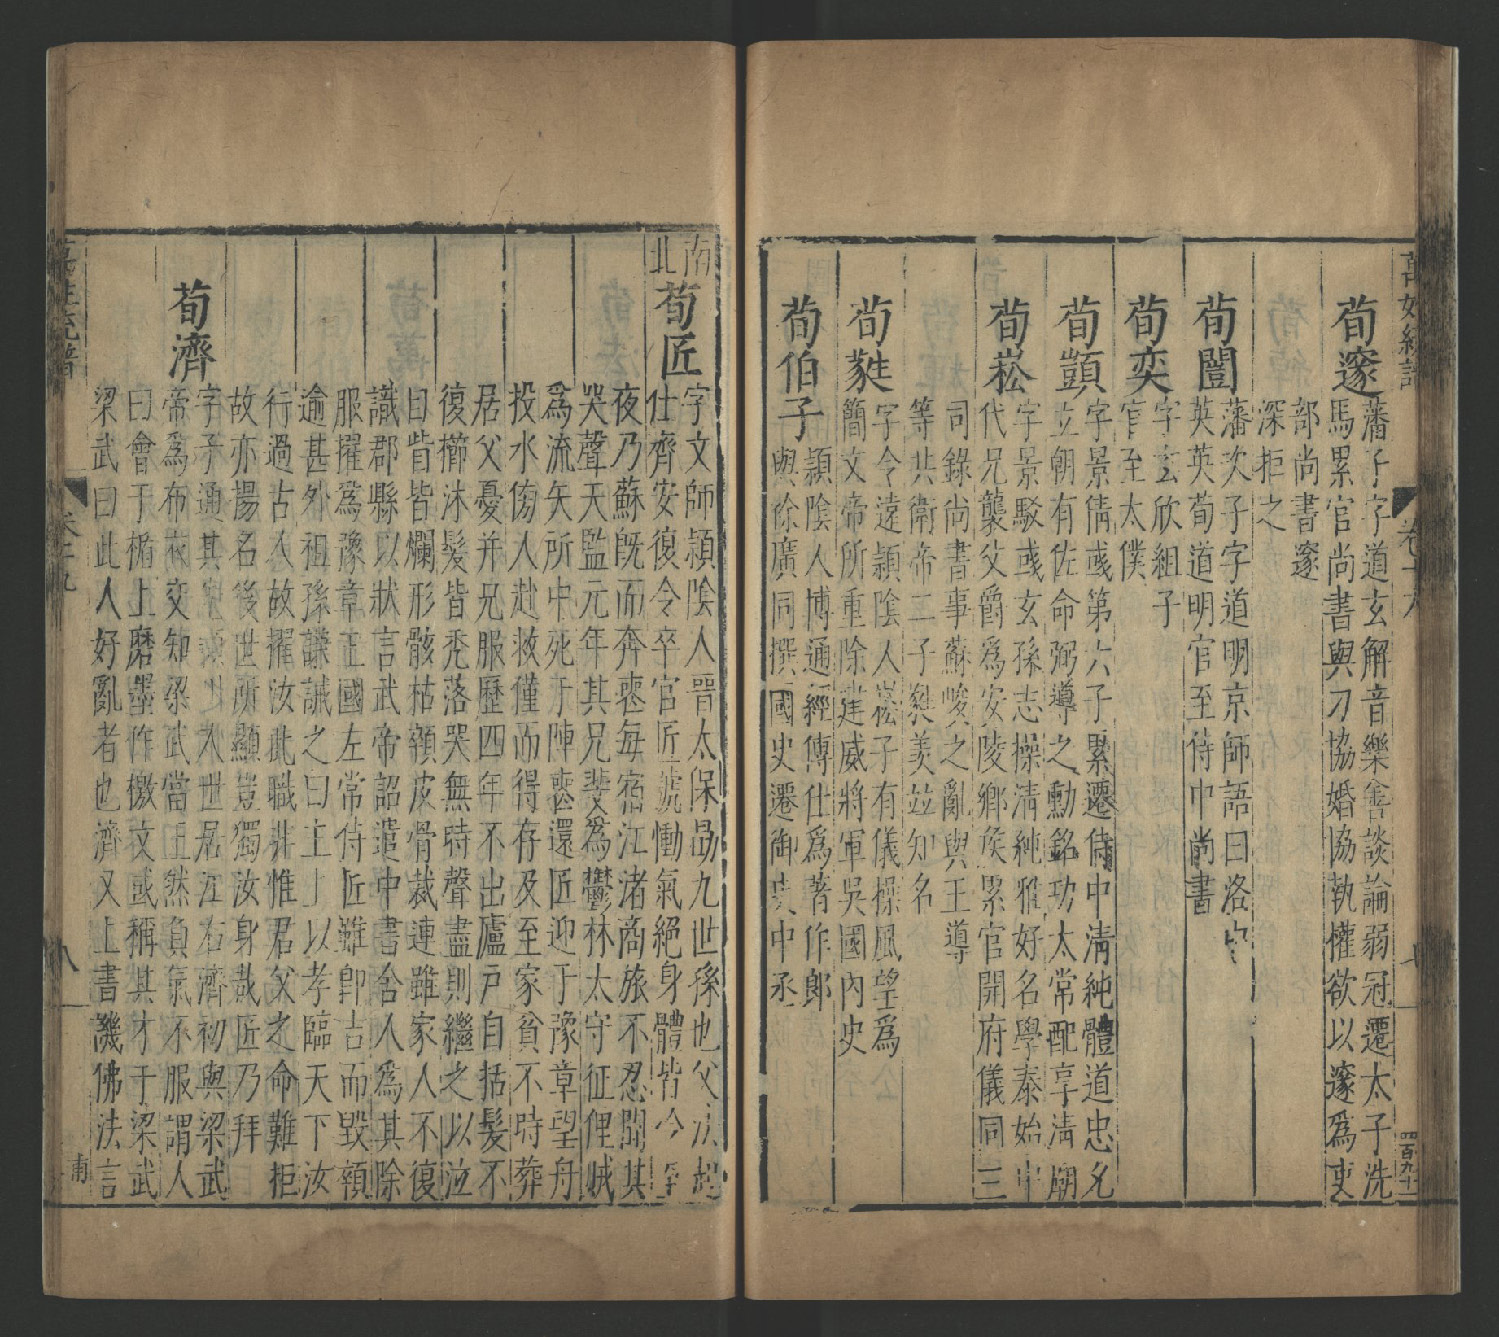 萬姓統譜
卷十九
四百九十一
荀邃
藩子字道玄解音樂善談論弱冠遷太子洗
馬累官尚書與刁協婚協執權欲以邃爲吏
部尚書邃
深拒之
荀闓
藩次子字道明京師語曰洛中
英英荀道明官至侍中尚書
荀奕
字玄欣組子
官至太僕
荀顗
字景倩彧第六子累遷侍中清純體道忠允
立朝有佐命弼導之勳銘功太常配享清廟
荀崧
字景猷彧玄孫志操清純雅好名學泰始中
代兄襲父爵爲安陵鄉侯累官開府儀同三
司錄尚書事蘇峻之亂與王導
等共衛帝二子㽔羡竝知名
荀蕤
字令遠潁陰人崧子有儀操風望爲
簡文帝所重除建威將軍吳國內史
荀伯子
潁陰人博通經傳仕爲著作郎
與徐廣同撰國史遷御史中丞
南北
荀匠
字文師潁陰人晉太保勗九世孫也父法超
仕齊安復令卒官匠號慟氣絕身體皆冷至
夜乃蘇旣而奔喪每宿江渚商旅不忍聞其
哭聲天監元年其兄斐爲鬱林太守征俚賊
爲流矢所中死于陣喪還匠迎于豫章望舟
投水傍人赴救僅而得存及至家貧不時葬
居父憂并兄服歷四年不出廬戶自括髮不
復櫛沐髮皆禿落哭無時聲盡則繼之以泣
目眥皆爛形骸枯顇皮骨裁連雖家人不復
識郡縣以狀言武帝詔遣中書舍人爲其除
服擢爲豫章王國左常侍匠雖卽吉而毀顇
逾甚外祖孫謙誡之曰主上以孝臨天下汝
行過古人故擢汝此職非惟君父之命難拒
故亦揚名後世所顯豈獨汝身哉匠乃拜
荀濟
字子通其先潁川人世居江左濟初與梁武
帝爲布衣交知梁武當王然負氣不服謂人
曰會于楯上磨墨作檄文或稱其才于梁武
梁武曰此人好亂者也濟又上書譏佛法言
萬姓統譜
卷十九
八
甫